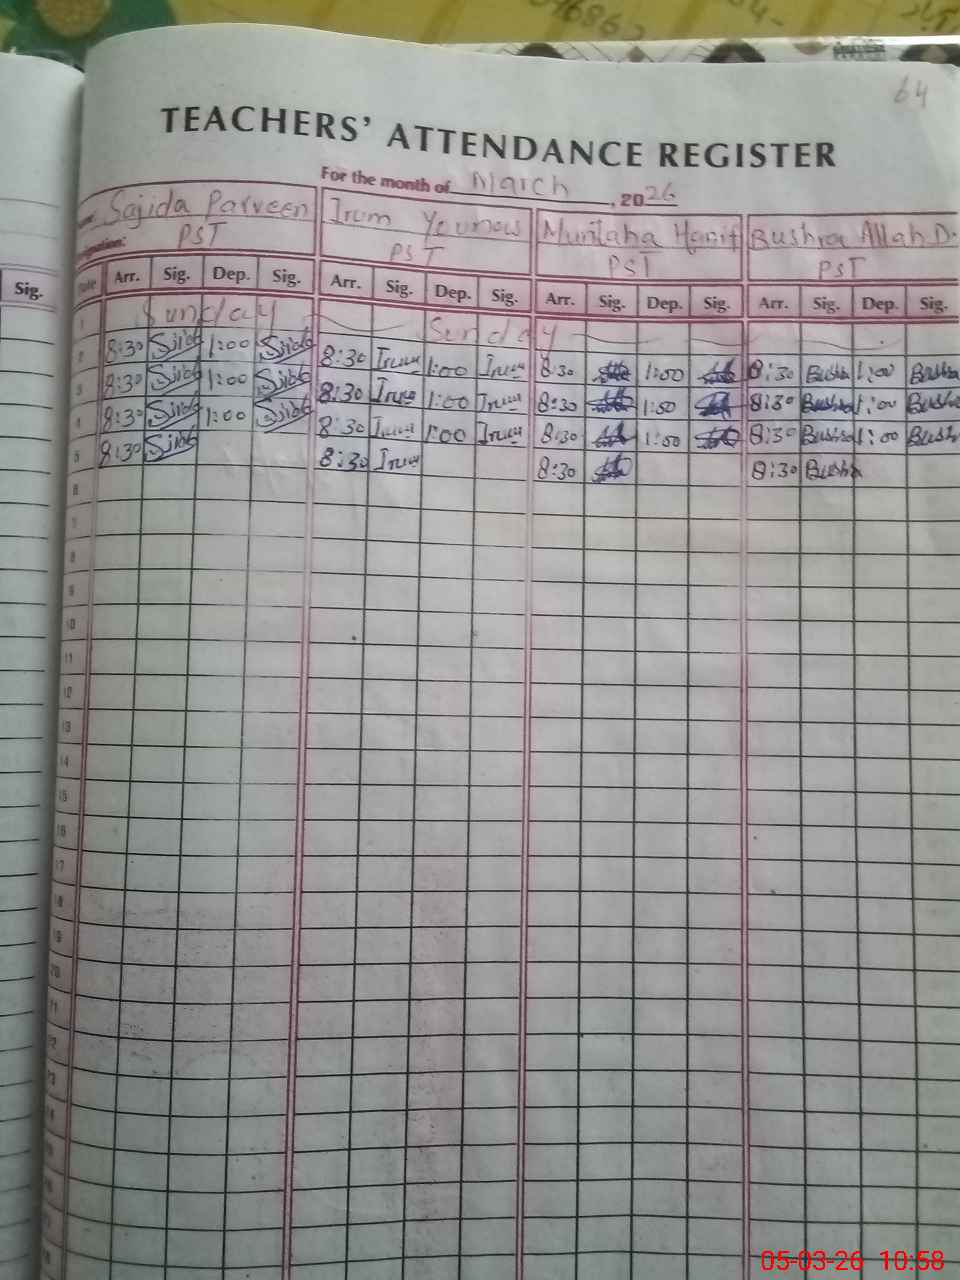 64
TEACHERS' ATTENDANCE REGISTER
For the month of March, 2026
Sajida Parveen Irum Younows Muntaha Hanif Bushra Allah D.
PST PST PST PST
Sig. Date Arr. Sig. Dep. Sig. Arr. Sig. Dep. Sig. Arr. Sig. Dep. Sig. Arr. Sig. Dep. Sig.
1 Sunday Sunday
2 8:30 1:00 8:30 Irum 1:00 Irum 8:30 1:00 8:30 Bushra 1:00 Bushra
3 8:30 1:00 8:30 Irum 1:00 Irum 8:30 1:00 8:30 Bushra 1:00 Bushra
4 8:30 1:00 8:30 Irum 1:00 Irum 8:30 1:00 8:30 Bushra 1:00 Bush
5 8:30 8:30 Irum 8:30 8:30 Bushra
6
7
8
9
10
11
12
13
14
15
16
17
18
19
20
05-03-26 10:58